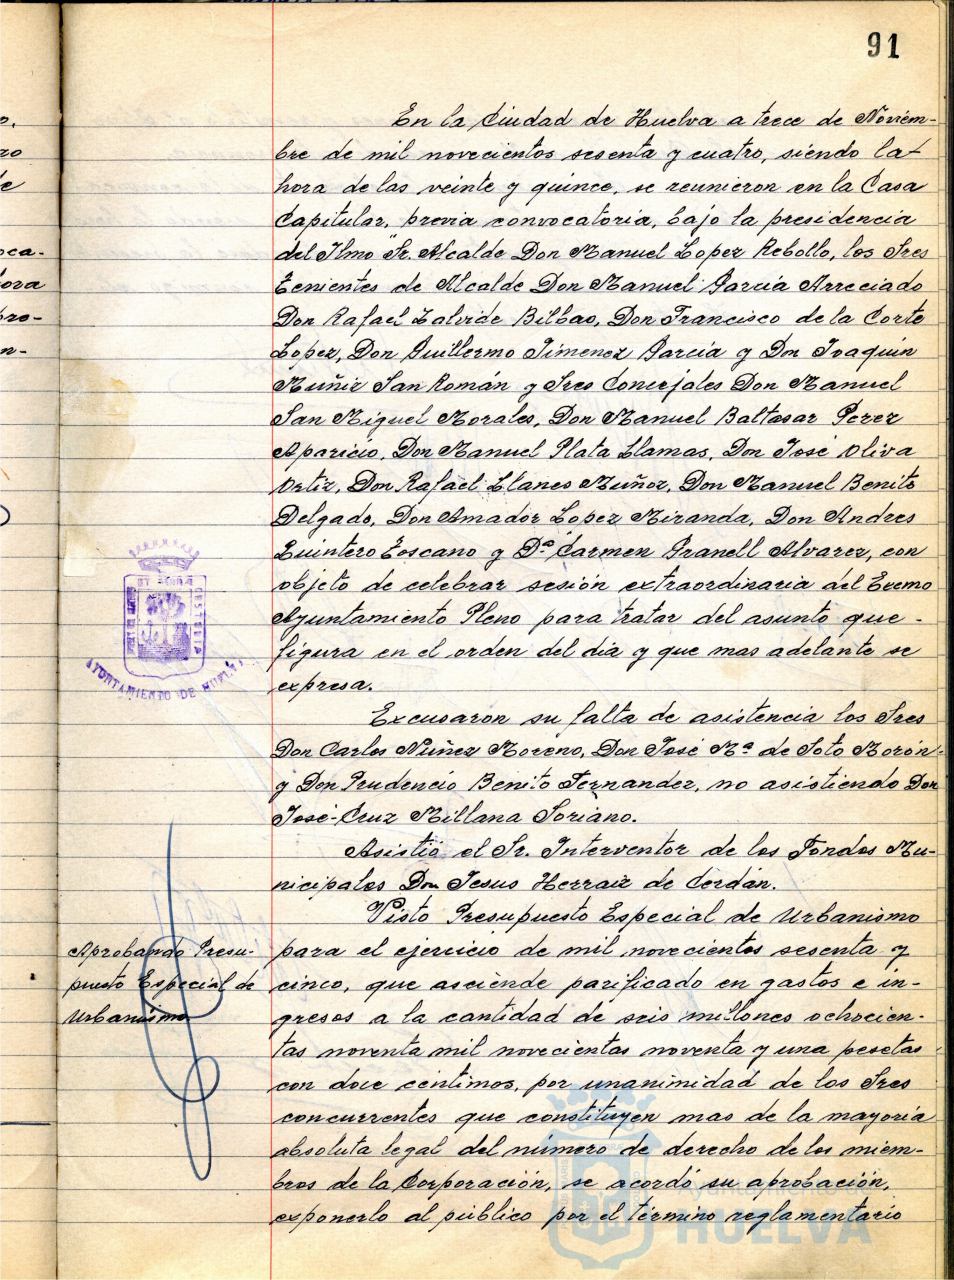 91
En la Ciudad de Huelva a trece de Noviem-
bre de mil novecientos sesenta y cuatro, siendo la
hora de las veinte y quince, se reunieron en la Casa
Capitular, previa convocatoria, bajo la presidencia
del Ilmo Sr. Alcalde Don Manuel Lopez Rebollo, los Sres
Tenientes de Alcalde Don Manuel Garcia Arreciado
Don Rafael Lalvide Bilbao, Don Francisco de la Corte
Lopez, Don Guillermo Jimenez Garcia y Don Joaquin
Muñiz San Román y Sres Concejales Don Manuel
San Miguel Morales, Don Manuel Baltasar Perez
Aparicio, Don Manuel Plata Llamas, Don José Oliva
Ortiz, Don Rafael Llanes Muñoz, Don Manuel Benito
Delgado, Don Amador Lopez Miranda, Don Andres
Quintero Toscano y Dª Carmen Granell Alvarez, con
objeto de celebrar sesión extraordinaria del Excmo
Ayuntamiento Pleno para tratar del asunto que
figura en el orden del dia y que mas adelante se
expresa.
Excusaron su falta de asistencia los Sres
Don Carlos Nuñez Moreno, Don José Mª de Soto Morón
y Don Prudencio Benito Fernandez, no asistiendo Don
José-Cruz Millana Soriano.
Asistió el Sr. Interventor de los Fondos Mu-
nicipales Don Jesus Herraiz de Cerdán.
Visto Presupuesto Especial de Urbanismo
para el ejercicio de mil novecientos sesenta y
cinco, que asciende parificado en gastos e in-
gresos a la cantidad de seis millones ochocien-
tas noventa mil novecientas noventa y una pesetas
con doce centimos, por unanimidad de los Sres
concurrentes que constituyen mas de la mayoria
absoluta legal del número de derecho de los miem-
bros de la Corporación, se acordó su aprobación,
exponerlo al público por el término reglamentario
Aprobando Presu-
puesto Especial de
Urbanismo
AYUNTAMIENTO DE HUELVA
Ayuntamiento de
HUELVA